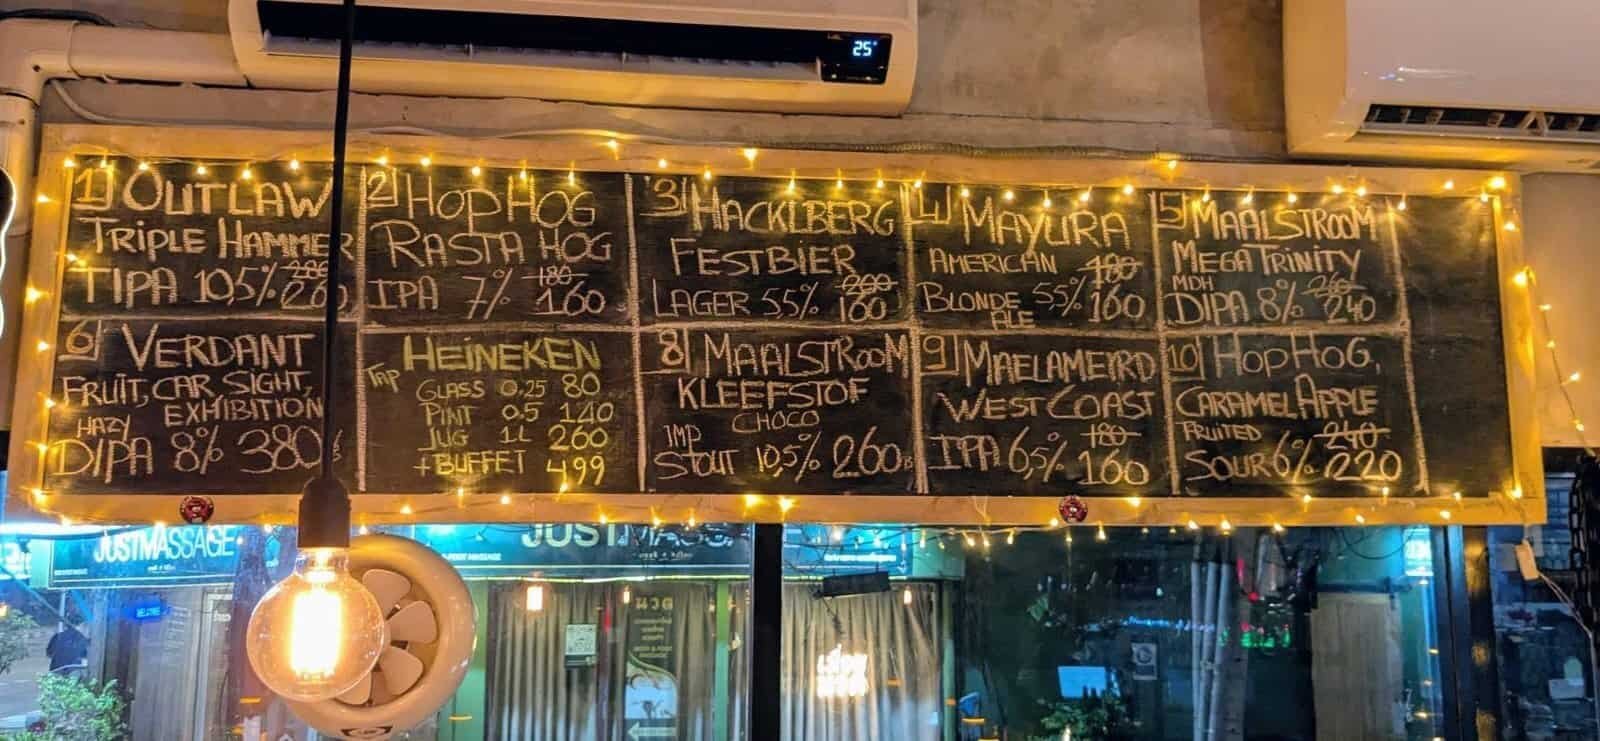 25°
1 OUTLAW
TRIPLE HAMMER
TIPA 10,5% 280 260
2 HOP HOG
RASTA HOG
IPA 7% 180 160
3 HACKLBERG
FESTBIER
LAGER 5.5% 200 160
4 MAYURA
AMERICAN 180
BLONDE 5.5% 160
ALE
5 MAALSTROOM
MEGA TRINITY
MDH 260
DIPA 8% 240
6 VERDANT
FRUIT, CAR, SIGHT,
EXHIBITION
HAZY
DIPA 8% 380
HEINEKEN
TAP GLASS 0.25 80
PINT 0.5 140
JUG 1L 260
+BUFFET 499
8 MAALSTROOM
KLEEFSTOF
CHOCO
IMP
STOUT 10,5% 260
9 MAELAMEIRD
WEST COAST
180
IPA 6,5% 160
10 HOP HOG,
CARAMEL APPLE
FRUITED 240
SOUR 6% 220
JUSTMASSAGE
JUSTMASSA
MASSAGE